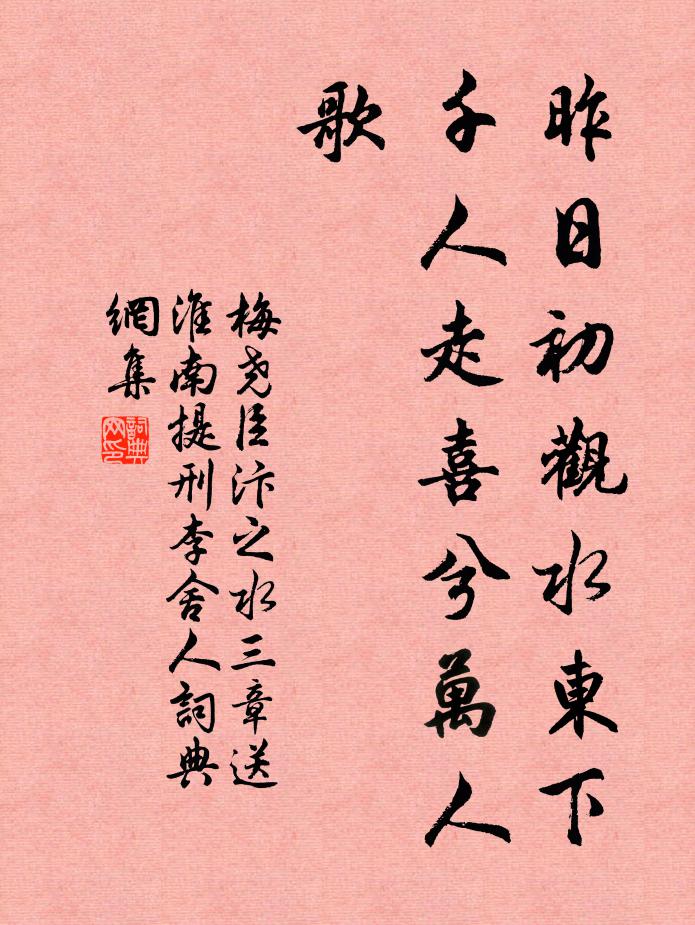 昨日初觀水東下
千人走喜兮萬人
歌
梅堯臣汴之水三章送
淮南提刑李舍人詞典
網集
詞典
网印